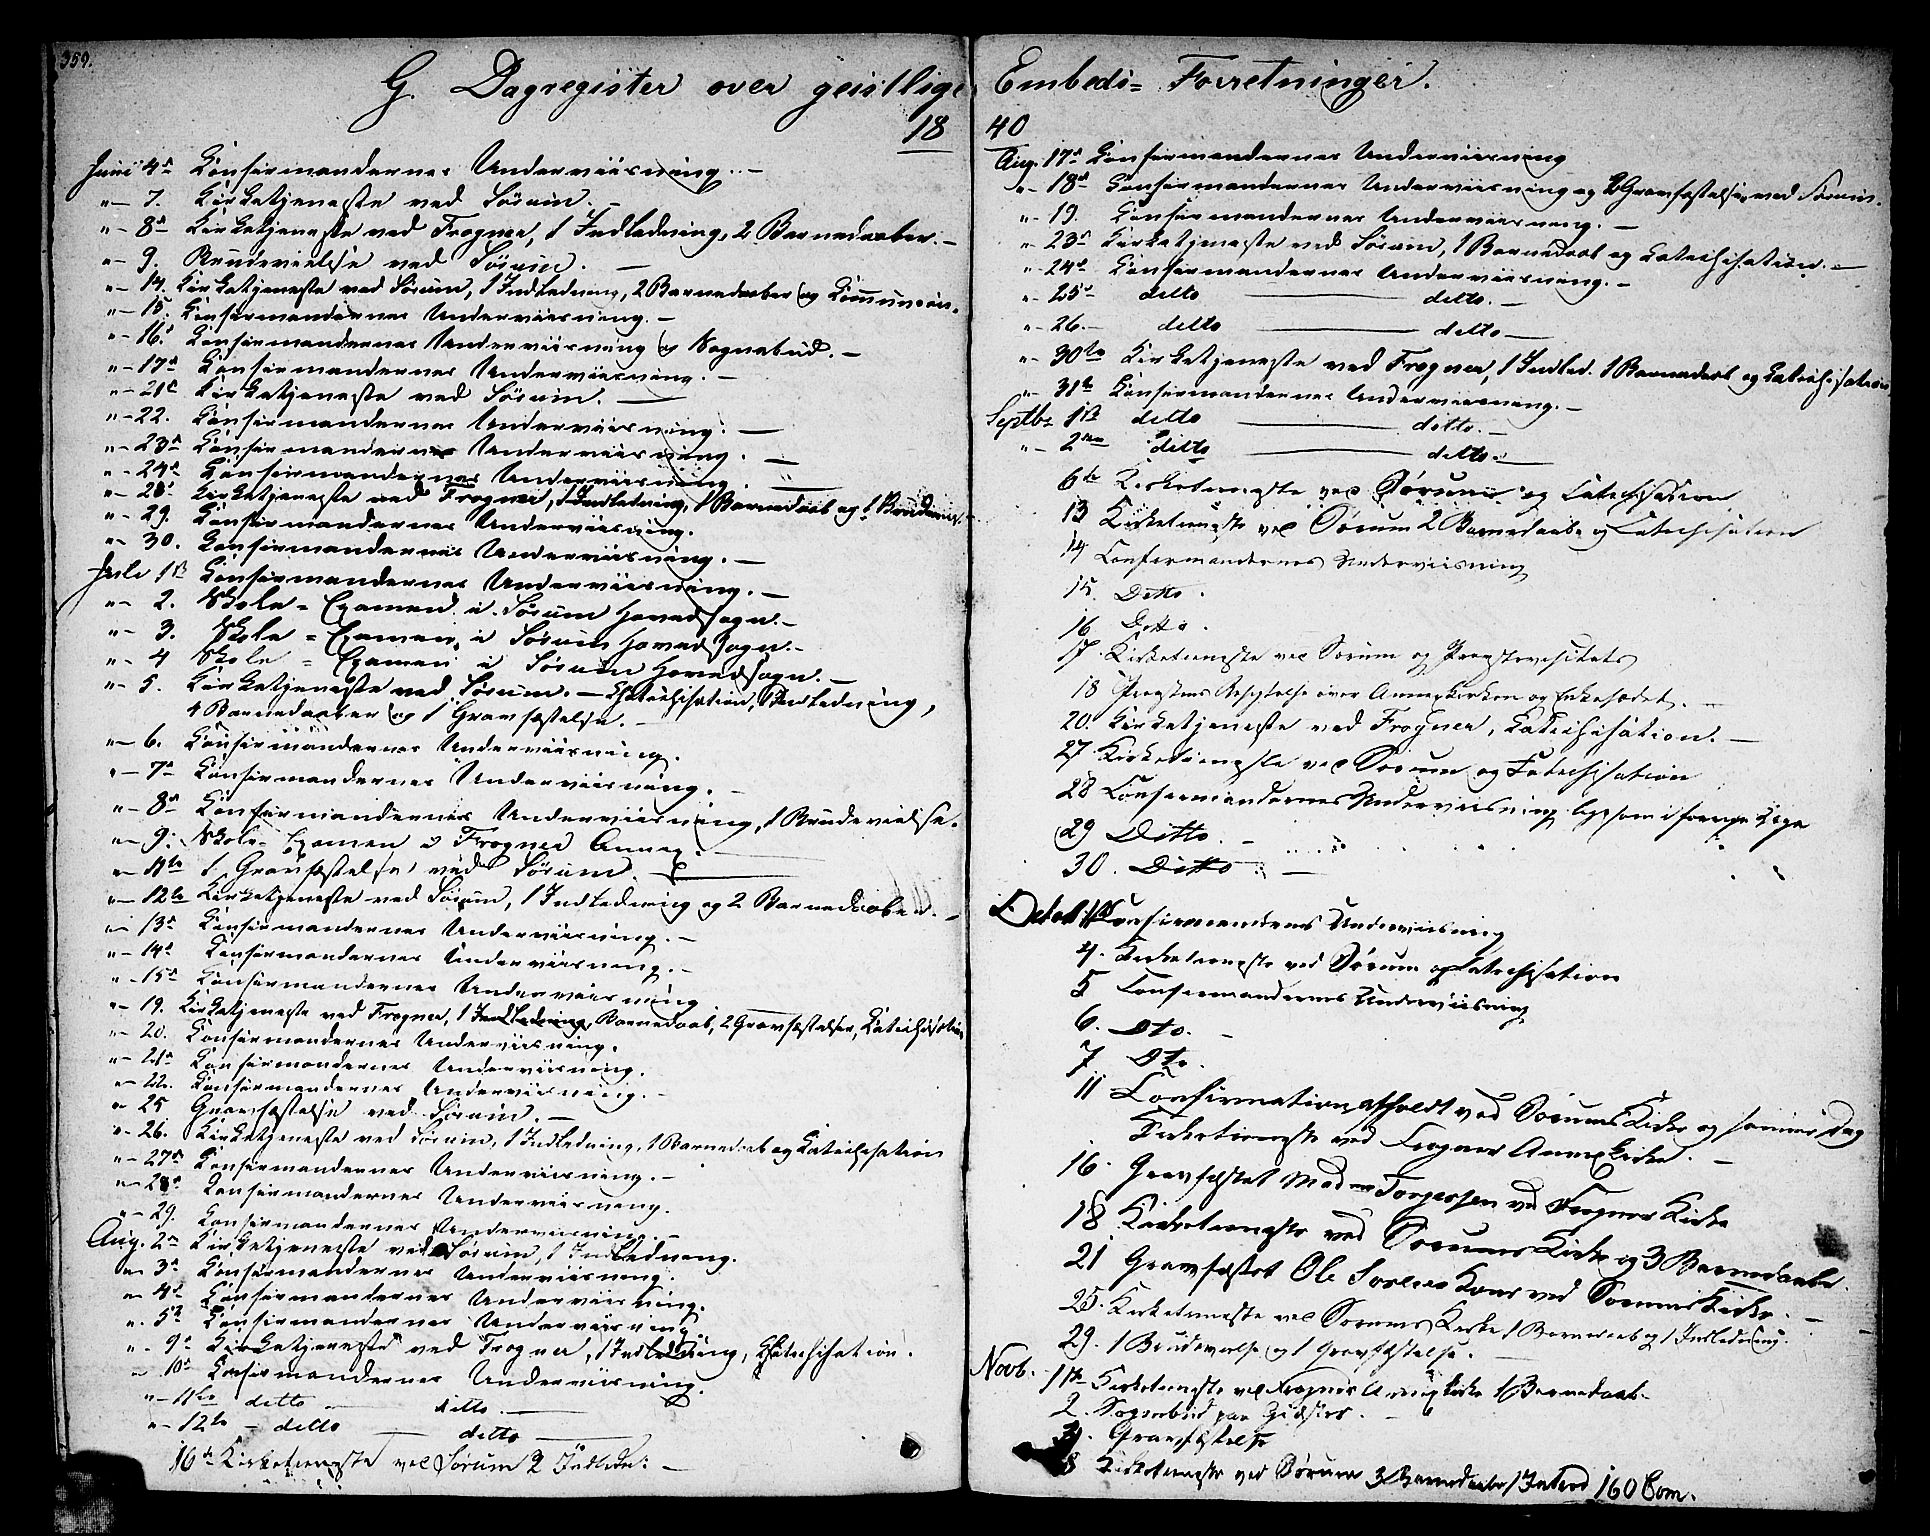 359.
G. Dagregister over geistlige Embeds= Forretninger.
1840
Juni 4de Confirmandernes Underviisning. –
"– 7. Kirketjeneste ved Sörum. –
"– 8de Kirketjeneste ved Frogner, 1 Indledning, 2 Barnedaaber. –
"– 9. Brudevielse ved Sörum. –
"– 14. Kirketjeneste ved Sörum, 1 Indledning, 2 Barnedaaber og Communion.
"– 15. Confirmandernes Underviisning. –
"– 16. Confirmandernes Underviisning og Sognebud. –
"– 17de Confirmandernes Underviisning. –
"– 21de Kirketjeneste ved Sörum. –
"– 22. Confirmandernes Underviisning. –
"– 23de Confirmandernes Underviisning. –
"– 24de Confirmandernes Underviisning. –
"– 28. Kirketjeneste ved Frogner, 1 Indledning, 1 Barnedaab og 1 Brudeviel.
"– 29. Confirmandernes Underviisning.
"– 30. Confirmandernes Underviisning. –
Juli 1ste Confirmandernes Underviisning. –
"– 2. Skole = Examen i Sörum Hovedsogn. –
"– 3. Skole = Examen i Sörum Hovedsogn. –
"– 4 Skole = Examen i Sörum Hovedsogn. –
"– 5. Kirketjeneste ved Sörum. – Chatechisation, 1 Indledning,
4 Barnedaaber og 1 Gravfæstelse. –
"– 6. Confirmandernes Underviisning.
"– 7de Confirmandernes Underviisning. –
"– 8de Confirmandernes Underviisning, 1 Brudevielse.
"– 9. Skole= Examen i Frogner Annex. –
"– 11te 1 Gravfæstelse ved Sörum. –
"– 12te Kirketjeneste ved Sörum, 1 Indledning og 2 Barnedaaber. –
"– 13de Confirmandernes Underviisning. –
"– 14de Confirmandernes Underviisning. –
"– 15de Confirmandernes Underviisning
"– 19. Kirketjeneste ved Frogner, 1 Indledning, Barnedaab, 2 Gravfæstelser, Catechisation
"– 20. Confirmandernes Underviisning.
"– 21de Confirmandernes Underviisning.
"– 22. Confirmandernes Underviisning. –
"– 25 Gravfæstelse ved Sörum. –
"– 26. Kirketjeneste ved Sörum, 1 Indledning, 1 Barnedaab og Catechisation
"– 27de Confirmandernes Underviisning. –
"– 28de Confirmandernes Underviisning.
"– 29. Confirmandernes Underviisning. –
Aug. 2de Kirketjeneste ved Sörum, 1 Indledning.
"– 3de Confirmandernes Underviisning.
"– 4de Confirmandernes Underviisning.
"– 5te Confirmandernes Underviisning
"– 9de Kirketjeneste ved Frogner, 1 Indledning, Chatechisation.
"– 10de Confirmandernes Underviisning.
"– 11te ditto – ditto. –
"– 12te – ditto – ditto –
16de Kirketieneste ved Sörum 2 Indledn: –
Aug. 17de Confirmandernes Underviisning
"– 18de Confirmandernes Underviisning og 2 Gravfæstelser ved Sörum.
"– 19. Confirmandernes Underviisning. –
"– 23de Kirketjeneste ved Sörum, 1 Barnedaab og Catechisation. –
"– 24de Confirmandernes Underviisning. –
"– 25de ditto – ditto. –
"– 26. – ditto – ditto –
"– 30te Kirketjeneste ved Frogner, 1 Indled. 1 Barnedaab og Catechisation
"– 31te Confirmandernes Underviisning. –
Septbr 1ste ditto – ditto. –
"– 2den ditto – ditto. –
6te Kirketieneste ved Sörum og Catechisation
13 Kirketieneste ved Sörum 2 Barnedaabe og Catechisation
14 Confirmandernes Underviisning
15. Ditto.
16 Ditto.
17. Kirketieneste ved Sörum og Provstevisitats
18 Provstens Besigtelse over Annexkirken og Enkesædet. –
20. Kirketjeneste ved Frogner, Catechisation. –
27. Kirketieneste ved Sörum og Catechisation
28 Confirmandernes Underviisning ligesom i forrige Uge
29 Ditto. –
30. Ditto –
Octob. 1ste Confirmandernes Underviisning
4. Kirketieneste ved Sörum og Catechisation
5 Confirmandernes Underviisning
6. Dto. –
7 Dto.
11 Confirmation afholdt ved Sörums Kirke og samme Dag
Kirketieneste ved Frogner Annexkirke. –
16. Gravfæstet Madme Torgersen ved Frogner Kirke
18 Kirketieneste ved Sörums Kirke og 3 Barnedaabe.
21 Gravfæstet Ole Sorens Kone ved Sörums Kirke. –
25. Kirketieneste ved Sörums Kirke 1 Barnedaab og 1 Indledning.
29. 1 Brudevielse og 1 Gravfæstelse. –
Novb. 1ste Kirketieneste ved Frogner Annexkirke 1 Barnedaab.
2. Sognebud paa
4. Gravfæstelse
8 Kirketieneste ved Sörum 3 Barnedaabe 1 Inled 160 Com.